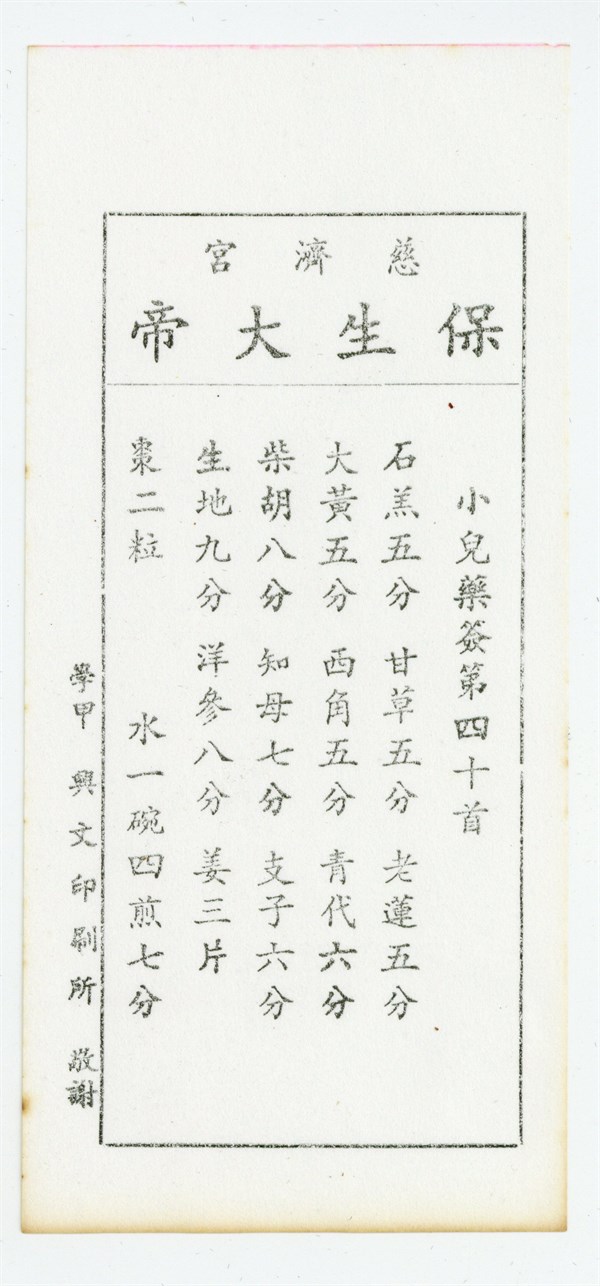 慈濟宮
保生大帝
小兒藥簽第四十首
石羔五分 甘草五分 老蓮五分
大黃五分 西角五分 青代六分
柴胡八分 知母七分 支子六分
生地九分 洋參八分 姜三片
棗二粒 水一碗四煎七分
學甲 興文印刷所 敬謝